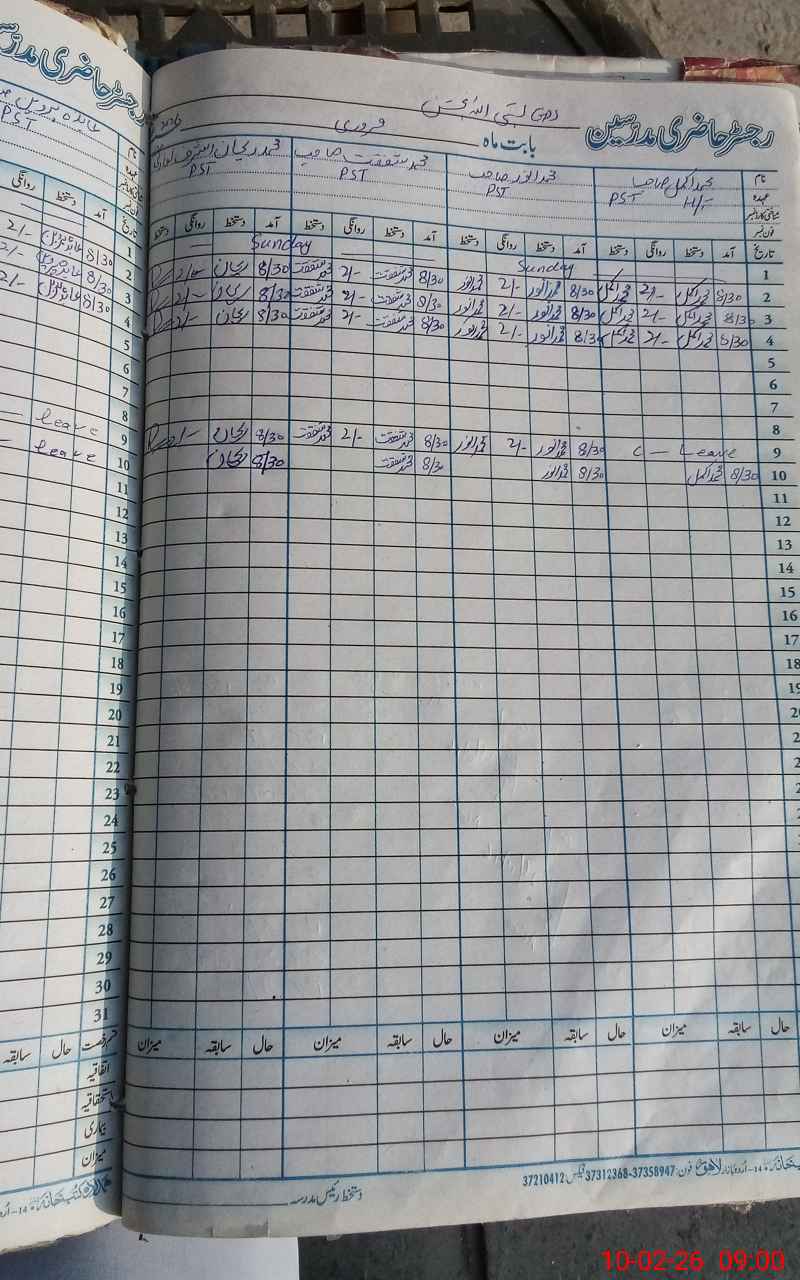 رجسٹر حاضری مدرسین
GPS بستی اللہ بخش
بابت ماہ فروری
نام
عہدہ
محمد اکمل صاحب
PST H/T
محمد انور صاحب
PST
محمد شفقت صاحب
PST
محمد ریحان اشرف
PST
تاریخ آمد دستخط روانگی دستخط آمد دستخط روانگی دستخط آمد دستخط روانگی دستخط آمد دستخط روانگی دستخط
1 Sunday Sunday
2 8/30 محمد اکمل 2/- محمد اکمل 8/30 محمد انور 2/- محمد انور 8/30 محمد شفقت 2/- محمد شفقت 8/30 ریحان 2/-
3 8/30 محمد اکمل 2/- محمد اکمل 8/30 محمد انور 2/- محمد انور 8/30 محمد شفقت 2/- محمد شفقت 8/30 ریحان 2/-
4 8/30 محمد اکمل 2/- محمد اکمل 8/30 محمد انور 2/- محمد انور 8/30 محمد شفقت 2/- محمد شفقت 8/30 ریحان 2/-
5
6
7
8
9 C — Leave 8/30 محمد انور 2/- محمد انور 8/30 محمد شفقت 2/- محمد شفقت 8/30 ریحان
10 8/30 محمد اکمل 8/30 محمد انور 8/30 محمد شفقت 8/30 ریحان
11
12
13
14
15
16
17
18
19
حال سابقہ میزان حال سابقہ میزان حال سابقہ میزان حال سابقہ میزان
14-اردو بازار لاہور فون: 37358947-37312368 فیکس 37210412
دستخط رئیس مدرسہ
رجسٹر حاضری مدر
PST
نام
عہدہ
تاریخ آمد دستخط روانگی
1
2 8/30 2/-
3 8/30 2/-
4 8/30 2/-
5
6
7
8
9 — Leave
10 — Leave
11
12
13
14
15
16
17
18
19
20
21
22
23
24
25
26
27
28
29
30
31
قسم رخصت حال سابقہ
اتفاقیہ
استحقاقیہ
بیماری
میزان
10-02-26 09:00